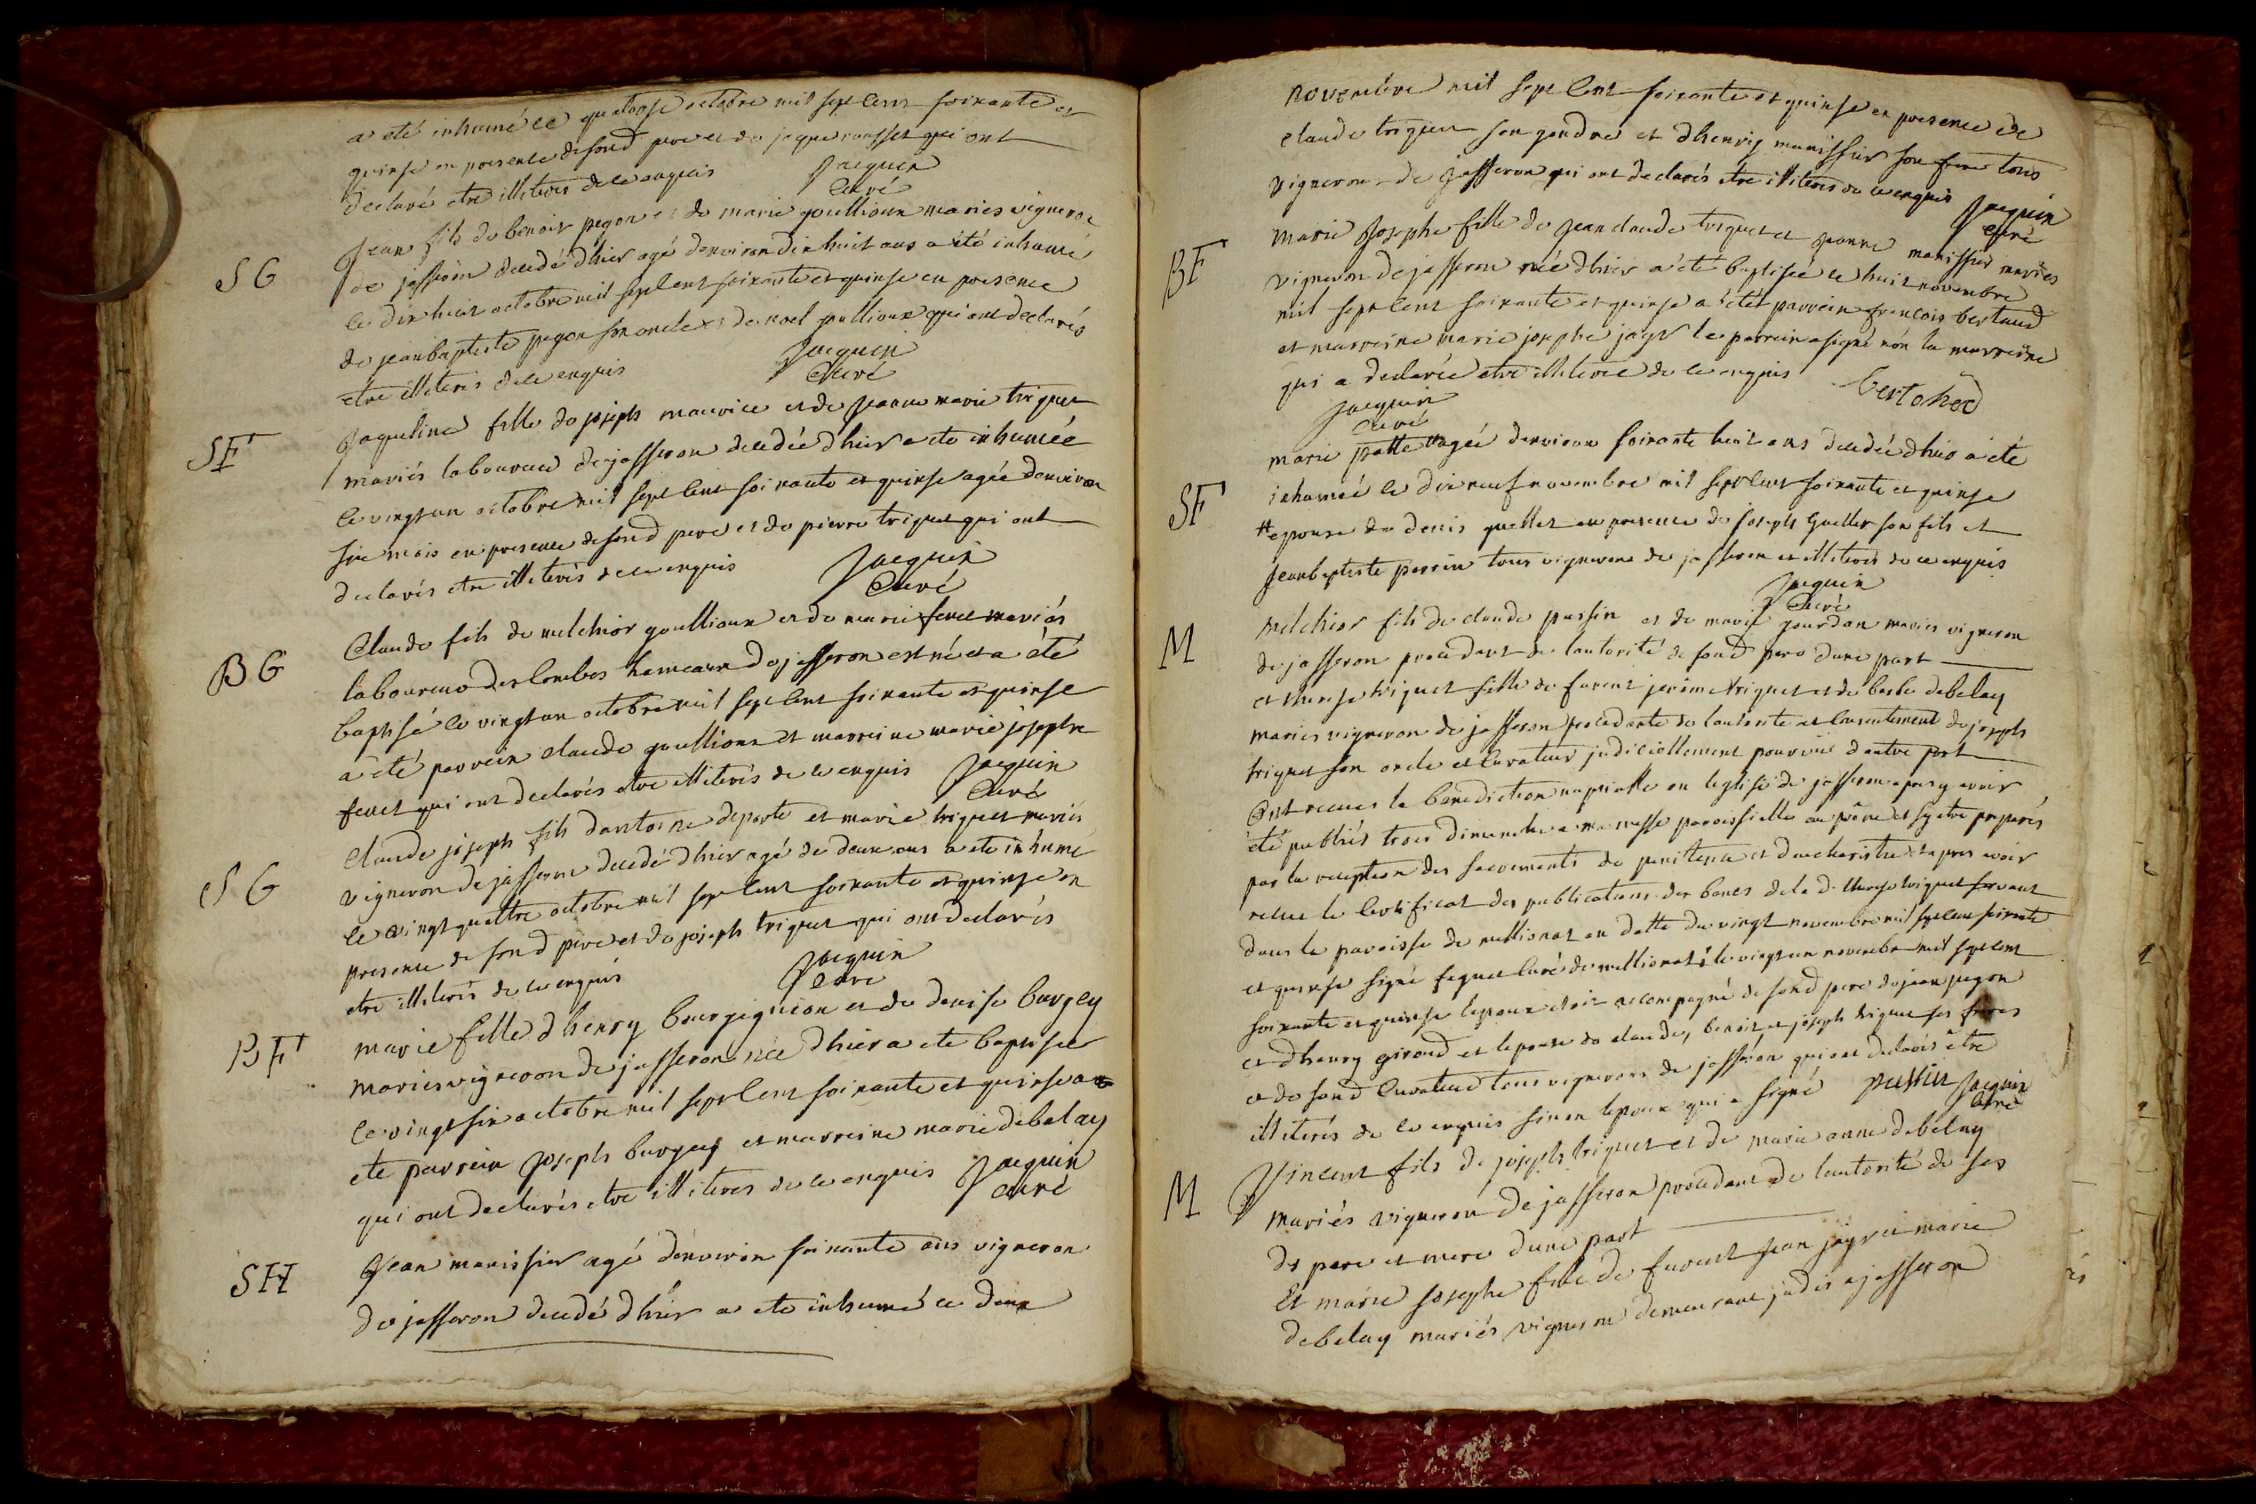 a eté inhumé le quatorze octobre mil sept cent soixante et
quinse en presence desond pere et de jaque rousset qui ont
declaré etre illiterés de ce enquis Jacquin
Curé
SG
Jean fils de benoit pegon et de marie goullioux mariés vigneron
de jasseron decedé dhier agé denviron dix huit ans a été inhumé
le dix huit octobre mil sept cent soixante et quinse en presence
de jean baptiste pegon son oncle et de noel goullioux qui ont declarés
etre illiterés de ce enquis Jacquin
Curé
SF
Jaqueline fille de joseph maurice et de jeanne marie triquet
mariés laboureur de jasseron decedée dhier a ete inhumée
le vingt un octobre mil sept cent soixante et quinse agée denviron
six mois en presence desond pere et de pierre triquet qui ont
declarés etre illiterés de ce enquis Jacquin
Curé
BG
Claude fils de melchior goullioux et de marie feuet mariés
laboureur des combes hameaux de jasseron est né et a été
baptisé le vingt un octobre mil sept cent soixante et quinse
a été parrein claude goullioux et marreine marie josephe
feuet qui ont declarés etre illiterés de ce enquis Jacquin
Curé
SG
Claude joseph fils dantoine deporte et marie triquet mariés
vigneron de jasseron decedé dhier agé de deux ans a ete inhumé
le vingt quattre octobre mil sept cent soixante et quinse en
presence de sond pere et de joseph triquet qui ont declarés
etre illiterés de ce enquis Jacquin
Curé
BF
marie fille dhenry bourgignion et de denise burgey
mariés vigneron de jasseron née dhier a ete baptisée
le vingt six octobre mil sept cent soixante et quinse a
ete parrein joseph burgey et marreine marie debelay
qui ont declarés etre illiterés de ce enquis Jacquin
curé
SH
Jean manissier agé denviron soixante ans vigneron
de jasseron decedé dhier a ete inhumé le deux
novembre mil sept cent soixante et quinse en presence de
claude triquet son gendre et dhenry manissier son frere tous
vigneron de jasseron qui ont declarés etre illiterés de ce enquis Jacquin
Curé
BF
marie Josephe fille de jean claude triquet et jeanne manissier mariés
vigneron de jasseron née dhier a été baptisée le huit novembre
mil sept cent soixante et quinse a été parrein francois bertaud
et marreine marie josephe jayr le parrein a signé non la marreine
qui a declarée etre illiterée de ce enquis
Jacquin
Curé
marie patte # agée denviron soixante huit ans decedée dhier a été
SF
inhumée le dix neuf novembre mil sept cent soixante et quinse
# epouse de denis guellet en presence de joseph guellet son fils et
Jean baptiste perrin tous vignerons de jasseron et illiterés de ce enquis
Jacquin
Curé
M
Melchior fils de claude pussin et de marie jourdan mariés vigneron
de jasseron procedant de lautorité de sond pere dune part
et therese triquet fille de furent jerome triquet et de barbe debelay
mariés vigneron de jasseron procedante de lautorité et consentement de joseph
triquet son oncle et curateur judiciellement pourvu dautre part
Ont recues la benediction nuptialle en leglise de jasseron apres y avoir
été publiés trois dimenches a ma messe paroissielle au prône et sy etre préparés
par la reception des sacrements de penitence et deucharistie et apres avoir
recue le certificat des publications des bancs de la d. therese triquet servant
dans la paroisse de mellionat en datte du vingt novembre mil sept cent soixante
et quinse signé curé de mellionat le vingt un novembre mil sept cent
soixante et quinse lepoux etoit accompagné de sond pere de jean pegon
et dhenry giroud et lepouse de claude, benoit et joseph triquet ses freres
et de sond curateur tous vignerons de jasseron qui ont declarés être
illiterés de ce enquis sinon lepoux qui a signé pussin Jacquin
Curé
M
Vincent fils de joseph triquet et de marie anne debelay
mariés vigneron de jasseron procedant de lautorité de ses
ds pere et mere dune part
Et marie josephe fille de furent jean jayr et marie
debelay mariés vigneron demeurant jadis a jasseron